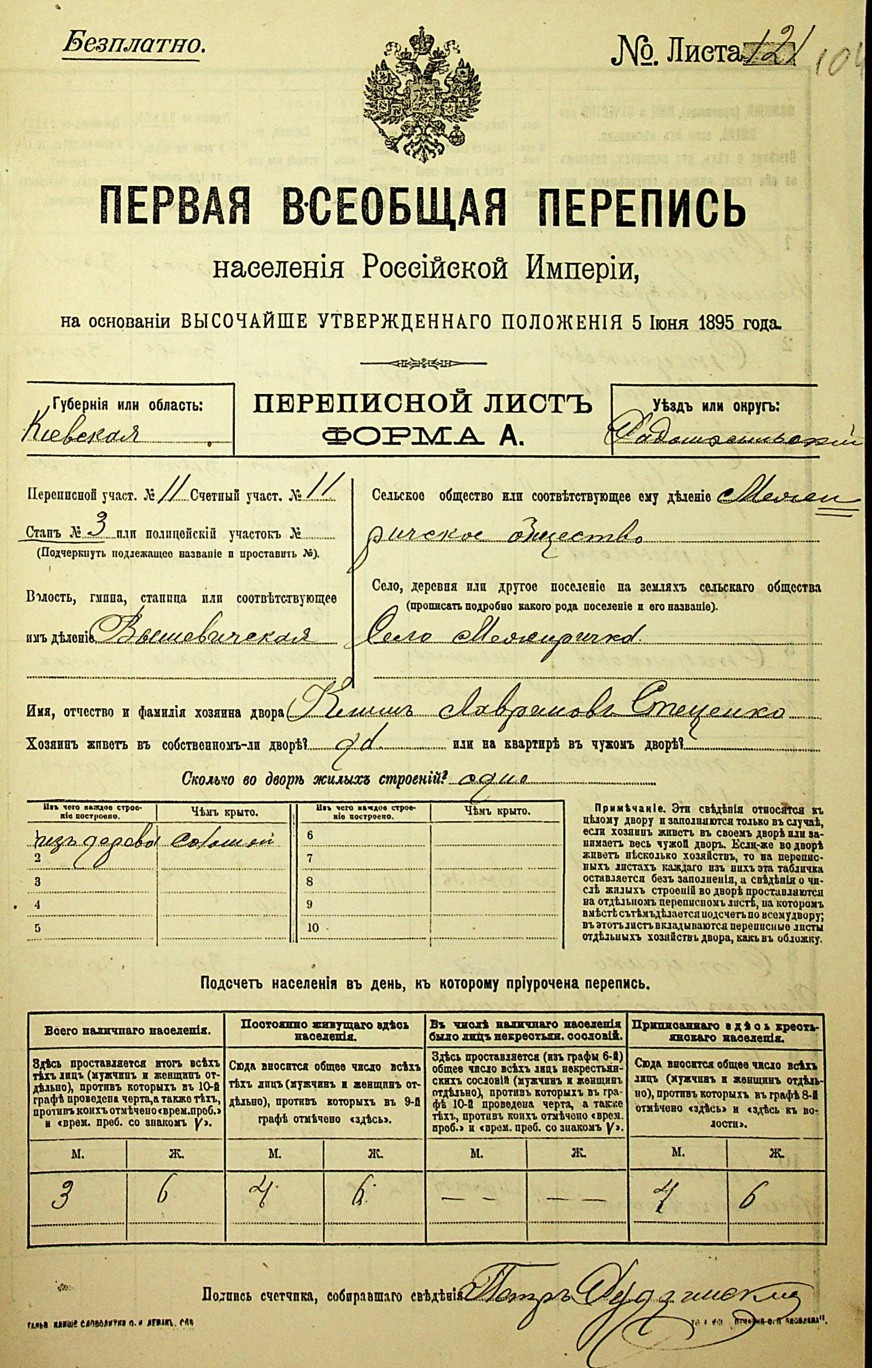 Безплатно.
№. Листа 121
104
ПЕРВАЯ ВСЕОБЩАЯ ПЕРЕПИСЬ
населенія Россійской Имперіи,
на основаніи ВЫСОЧАЙШЕ УТВЕРЖДЕННАГО ПОЛОЖЕНІЯ 5 Іюня 1895 года.
Губернія или область:
Кіевская
ПЕРЕПИСНОЙ ЛИСТЪ
ФОРМА А.
Уѣздъ или округъ:
Радомысльскій
Переписной участ. № 11 Счетный участ. № 11
Станъ № 3 или полицейскій участокъ №
(Подчеркнуть подлежащее названіе и проставить №).
Волость, гмина, станица или соотвѣтствующее
имъ дѣленіе Вышевичская
Сельское общество или соотвѣтствующее ему дѣленіе Межи
ричское общество
Село, деревня или другое поселеніе на земляхъ сельскаго общества
(прописать подробно какого рода поселеніе и его названіе).
Село Межиричка
Имя, отчество и фамилія хозяина двора Климъ Лавриновъ Стеценко
Хозяинъ живетъ въ собственномъ-ли дворѣ? да или на квартирѣ въ чужомъ дворѣ?
Сколько во дворѣ жилыхъ строеній? одно
Изъ чего каждое строеніе построено.
Чѣмъ крыто.
Изъ чего каждое строеніе построено.
Чѣмъ крыто.
изъ дерева соломой
6
2
7
3
8
4
9
5
10
Примѣчаніе. Эти свѣдѣнія относятся къ
цѣлому двору и заполняются только въ случаѣ,
если хозяинъ живетъ въ своемъ дворѣ или занимаетъ
весь чужой дворъ. Если-же во дворѣ
живетъ нѣсколько хозяйствъ, то на переписныхъ
листахъ каждаго изъ нихъ эта табличка
оставляется безъ заполненія, а свѣдѣнія о числѣ
жилыхъ строеній во дворѣ проставляются
на отдѣльномъ переписномъ листѣ, на которомъ
вмѣстѣ съ тѣмъ дѣлается подсчетъ по всему двору;
въ этотъ листъ вкладываются переписные листы
отдѣльныхъ хозяйствъ двора, какъ въ обложку.
Подсчетъ населенія въ день, къ которому пріурочена перепись.
Всего наличнаго населенія.
Здѣсь проставляется итогъ всѣхъ
тѣхъ лицъ (мужчинъ и женщинъ отдѣльно),
противъ которыхъ въ 10-й
графѣ проведена черта, а также тѣхъ,
противъ коихъ отмѣчено «врем. преб.»
и «врем. преб. со знакомъ V».
Постоянно живущаго здѣсь
населенія.
Сюда вносится общее число всѣхъ
тѣхъ лицъ (мужчинъ и женщинъ отдѣльно),
противъ которыхъ въ 9-й
графѣ отмѣчено «здѣсь».
Въ числѣ наличнаго населенія
было лицъ некрестьян. сословій.
Здѣсь проставляется (изъ графы 6-й)
общее число всѣхъ лицъ некрестьянскихъ
сословій (мужчинъ и женщинъ
отдѣльно), противъ которыхъ въ графѣ
10-й проведена черта, а также
тѣхъ, противъ коихъ отмѣчено «врем.
преб.» и «врем. преб. со знакомъ V».
Приписаннаго здѣсь крестьянскаго
населенія.
Сюда вносится общее число всѣхъ
лицъ (мужчинъ и женщинъ отдѣльно),
противъ которыхъ въ графѣ 8-й
отмѣчено «здѣсь» и «здѣсь къ волости».
М. Ж. М. Ж. М. Ж. М. Ж.
3 6 4 6 — — — — 4 6
Подпись счетчика, собиравшаго свѣдѣнія Петръ